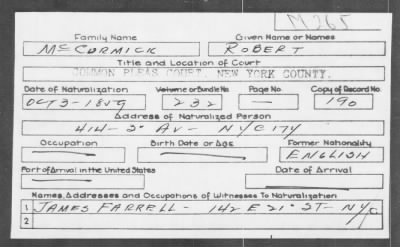 M265
Family Name Given Name or Names
McCORMICK ROBERT
Title and Location of Court
COMMON PLEAS COURT, NEW YORK COUNTY.
Date of Naturalization Volume or Bundle No. Page No. Copy of Record No.
OCT 3-1859 232 — 190
Address of Naturalized Person
414-2" AV- NY CITY
Occupation Birth Date or Age Former Nationality
ENGLISH
Port of Arrival in the United States Date of Arrival
Names, Addresses and Occupations of Witnesses To Naturalization
1 JAMES FARRELL- 142 E 21" ST- NYC
2